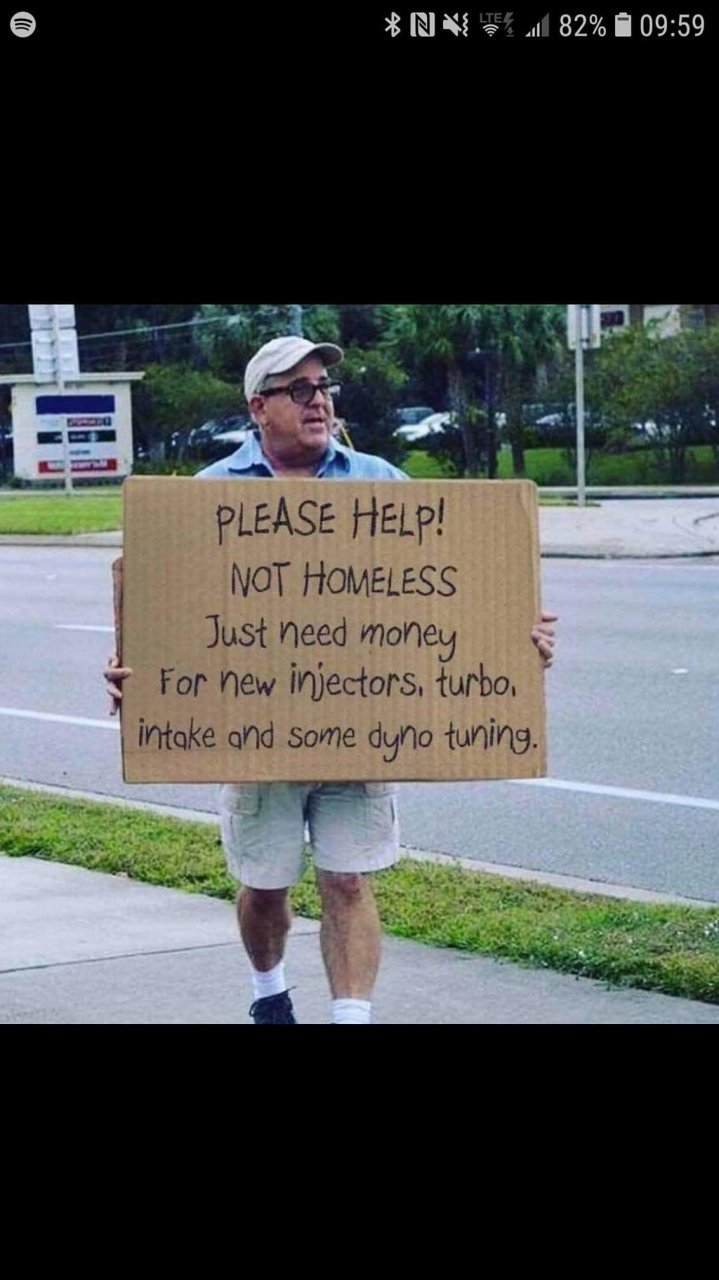 LTE 82% 09:59
PLEASE HELP!
NOT HOMELESS
Just need money
For new injectors, turbo,
intake and some dyno tuning.